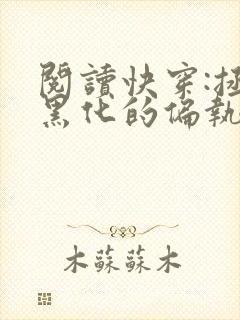 閱讀快穿:
黑化的偏執
木蘇蘇木